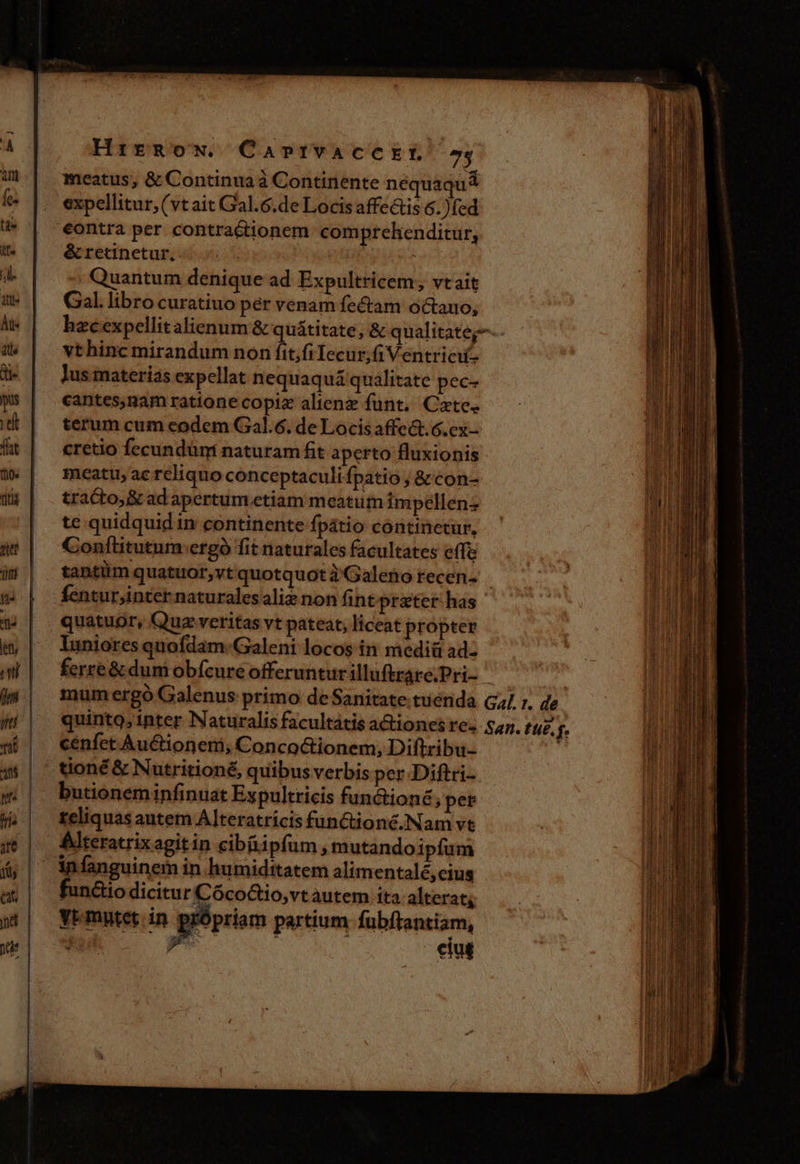 HIERON. CAPIVACCEI. 75
meatus, & Continua à Continente nequaquā
expellitur, (vt ait Gal. 6. de Locis affectis 6.) sed
contra per contractionem comprehenditur,
& retinetur.
Quantum denique ad Expultricem, vt ait
Gal. libro curatiuo per venam sectam octauo,
hæc expellit alienum & quātitate, & qualitate,
vt hinc mirandum non sit, si Iecur, si Ventricu-
lus materias expellat nequaquā qualitate pec-
cantes, nam ratione copiæ alienæ sunt. Cæte-
terum cum eodem Gal. 6. de Locis affect. 6. ex-
cretio secundùm naturam fit aperto fluxionis
meatu, ac reliquo conceptaculi spatio, & con-
tracto, & ad apertum etiam meatum impellen-
te quidquid in continente spatio continetur.
Constitutum ergò sit naturales facultates esse
tantùm quatuor, vt quotquot à Galeno recen-
sentur, inter naturales aliæ non sint præter has
quatuor, Quæ veritas vt pateat, liceat propter
Iuniores quosdam Galeni locos in mediū ad-
ferre & dum obscurè offeruntur illustrare. Pri-
mum ergò Galenus primo de Sanitate tuenda
quinto, inter Naturalis facultatis actiones re-
censet Auctionem, Concoctionem, Distribu-
tionē & Nutritionē, quibus verbis per Distri-
butionem insinuat Expultricis functionē, per
reliquas autem Alteratricis functionē. Nam vt
Alteratrix agit in cibū ipsum, mutando ipsum
in sanguinem in humiditatem alimentalē, eius
functio dicitur Cōcoctio, vt autem ita alterat,
vt mutet in propriam partium substantiam,
eius
Gal. 1. de
San. tuē. 5.